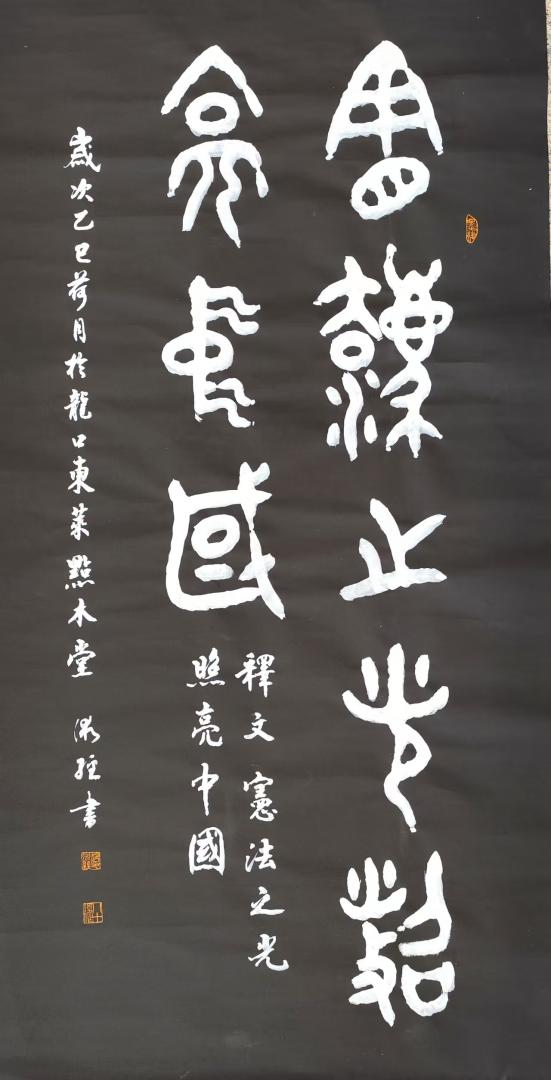 憲法之光照
亮中國
釋文 憲法之光
照亮中國
歲次乙巳荷月於龍口東萊點木堂 書